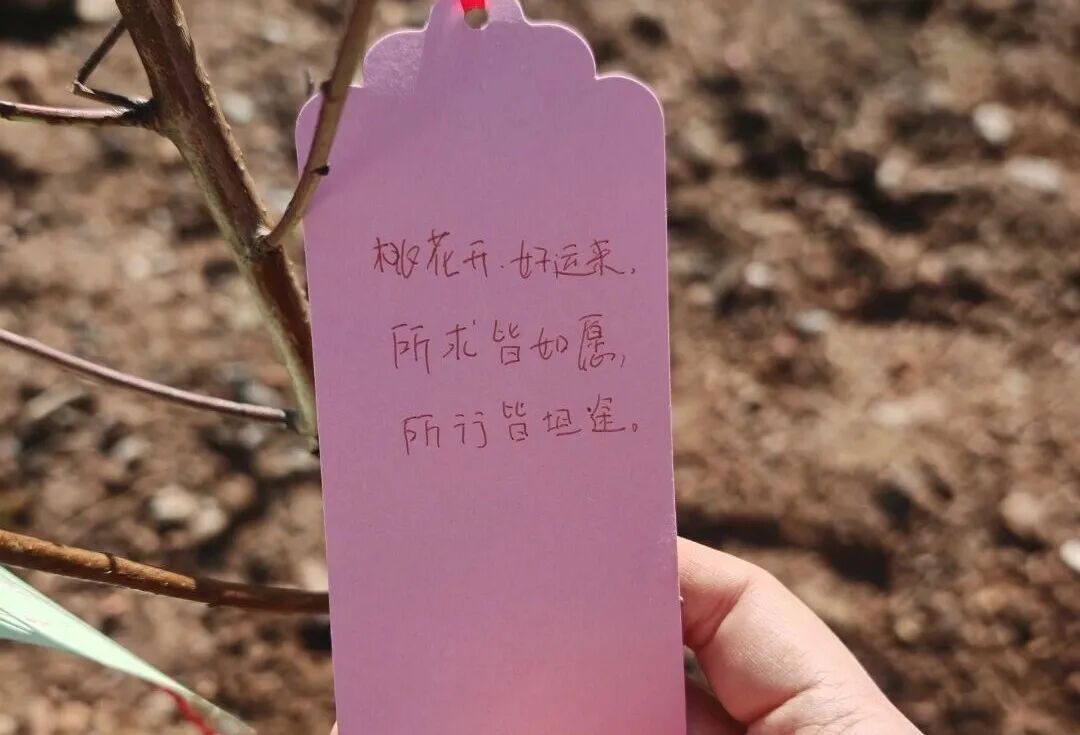 桃花开.好运来,
所求皆如愿,
所行皆坦途。